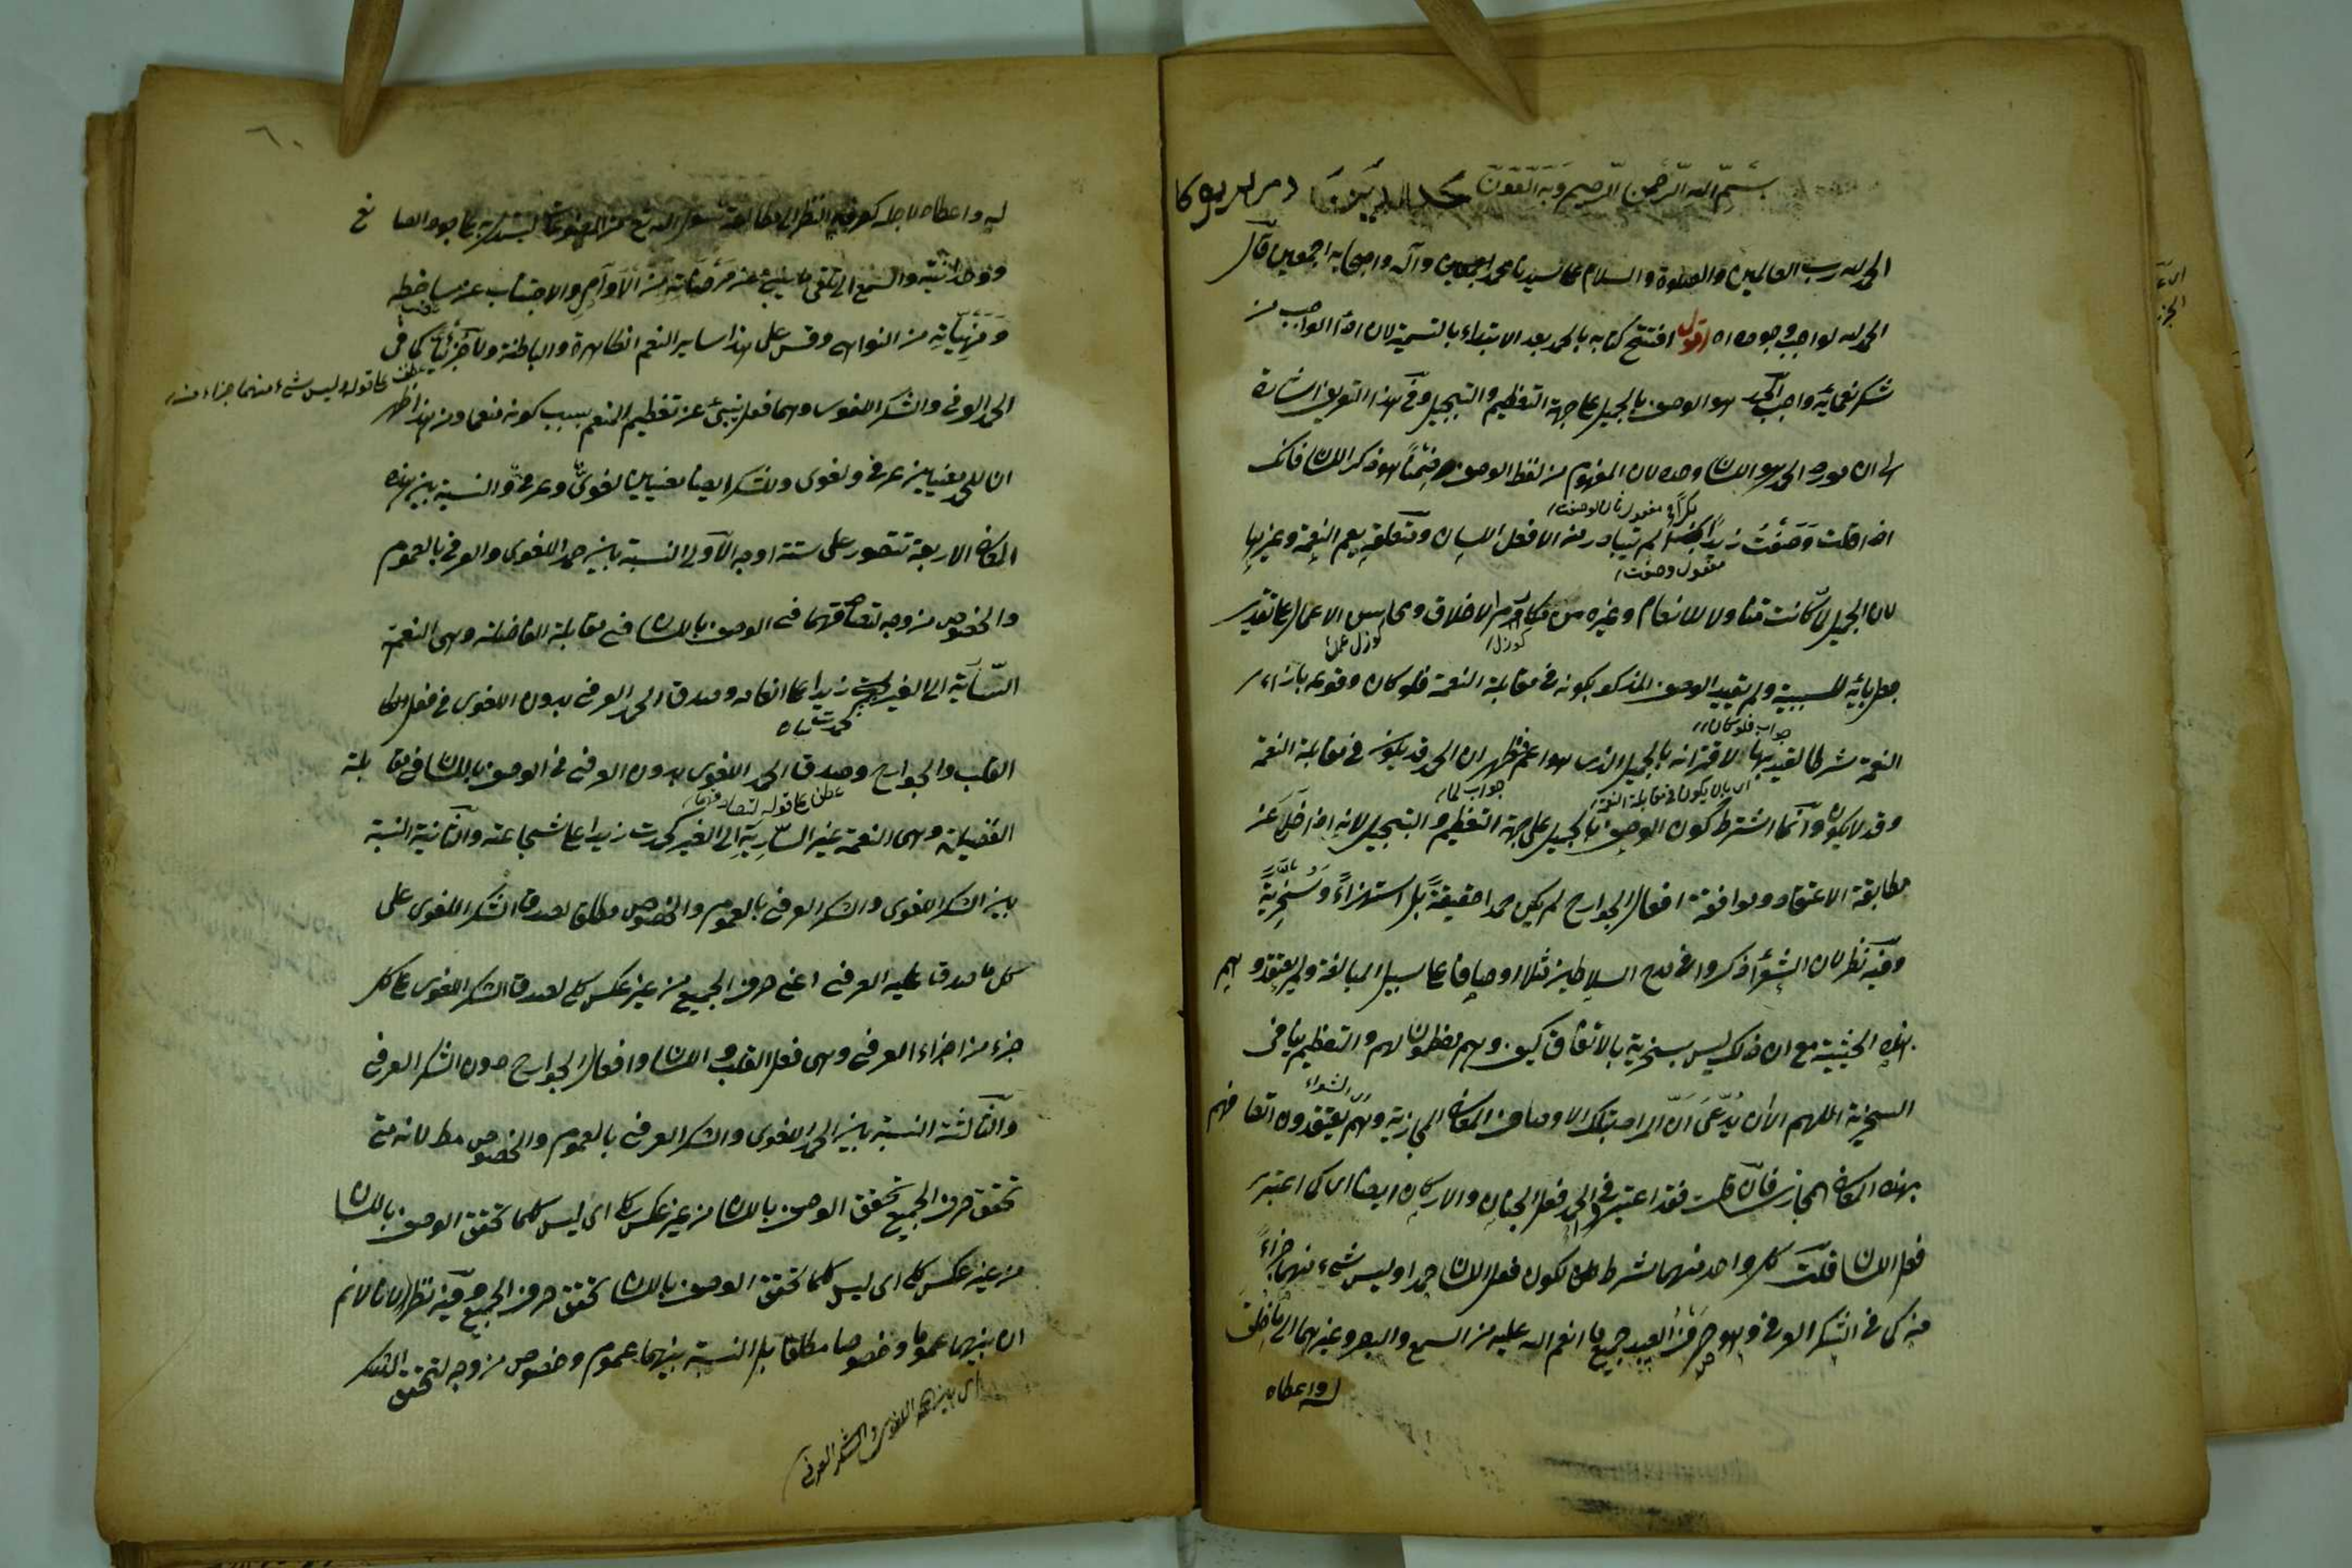 بسم الله الرحمن الرحيم وبه العون
الحمد لله رب العالمين والصلوة والسلام على سيدنا محمد وآله واصحابه اجمعين قال
الحمد لله لواجب وجوده اه اقول افتتح كتابه بالحمد بعد الابتداء بالتسمية لان اداء الواجب من
شكر نعمائه واجب الحمد هو الوصف بالجميل على جهة التعظيم والتبجيل وفي هذا التعريف اشارة
الى ان مورد الحمد هو اللسان وحده لان المفهوم من لفظ الوصف ضمنا هو ذكر اللسان فانك
اذا قلت وصفت زيدا بكذا لم يتبادر منه الا فعل اللسان ومتعلقه يعم النعمة وغيرها
مفعول وصفت
لان الجميل لما كانت متناولا للانعام وغيره من مكارم الاخلاق ومحاسن الاعمال على تقدير
جعل بائه للسببية ولم يقيد الوصف المذكور بكونه في مقابلة النعمة فلو كان وقوعه بازاء
جواب فلو كان
النعمة شرطا لقيد بها لاقترانه بالجميل الذي هو اعم فظهر ان الحمد قد يكون في مقابلة النعمة
اي بان يكون في مقابلة النعمة
جواب لما
وقد لا يكون وانما اشترط كون الوصف بالجميل على جهة التعظيم والتبجيل لانه اذا خلا عن
مطابقة الاعتقاد وموافقة افعال الجوارح لم يكن حمدا حقيقة بل استهزاء وسخرية
وفيه نظر لان الشعراء ذكروا في مدح السلاطين مثلا اوصافا على سبيل المبالغة ولم يعتقدوهم
بهذه الحيثية مع ان ذلك ليس بسخرية بالاتفاق كيف وهم معظمون لهم والتعظيم ينافي
اي الشعراء
السخرية اللهم الا ان يدعى ان المراد بتلك الاوصاف المعاني المجازية وهم يعتقدون اتصافهم
بهذه المعاني المجازي فان قلت فقد اعتبر في الحمد فعل الجنان والاركان ايضا اي كما اعتبر
فعل اللسان قلت كل واحد منهما شرط لكون فعل اللسان حمدا وليس شيء منهما جزاء
منه كما في الشكر العرفي وهو صرف العبد جميع ما انعم الله عليه من السمع والبصر وغيرهما الى ما خلق
له واعطاه
له واعطاه لاجله كصرفه النظر الى مطالعة
ووحدانيته والسمع الى تلقي ما ينبئ عن مرضياته من الاوامر والاجتناب عن مساخطه
ومنهياته من النواهي وقس على هذا ساير النعم الظاهرة والباطنة ولا جزئه كما في
عطف على قوله وليس شيء منهما جزاء منه
الحمد العرفي والشكر اللغوي وهما فعل ينبئ عن تعظيم المنعم بسبب كونه منعما ومن هذا ظهر
ان للحمد معنيين عرفي ولغوي وللشكر ايضا معنيان لغوي وعرفي والنسبة بين هذه
المعاني الاربعة تتصور على ستة اوجه الاولى النسبة بين حمد اللغوي والعرفي بالعموم
والخصوص من وجه لتصادقهما في الوصف باللسان في مقابلة الفاضلة وهي النعمة
السارية الى الغير كحمدت زيدا على انعامه وصدق الحمد العرفي بدون اللغوي في فعل
القلب والجوارح وصدق الحمد اللغوي بدون العرفي في الوصف باللسان في مقابلة
عطف على قوله لتصادقهما
الفضيلة وهي النعمة غير السارية الى الغير كحمدت زيدا على شجاعته والثانية النسبة
بين الشكر اللغوي والشكر العرفي بالعموم والخصوص مطلقا لصدق الشكر اللغوي على
كل ما صدق عليه العرفي اعني صرف الجميع من غير عكس كلي لصدق الشكر اللغوي على كل
جزء من اجزاء العرفي وهي فعل القلب واللسان وافعال الجوارح دون الشكر العرفي
والثالثة النسبة بين الحمد اللغوي والشكر العرفي بالعموم والخصوص مط لانه متى
تحقق صرف الجميع تحقق الوصف باللسان من غير عكس كلي اي ليس كلما تحقق الوصف باللسان
من غير عكس كلي اي ليس كلما تحقق الوصف باللسان تحقق صرف الجميع وفيه نظر لانا لانم
ان بينهما عموما وخصوصا مطلقا بل النسبة بينهما عموم وخصوص من وجه لتحقق الشكر
اي بين حمد اللغوي والشكر العرفي